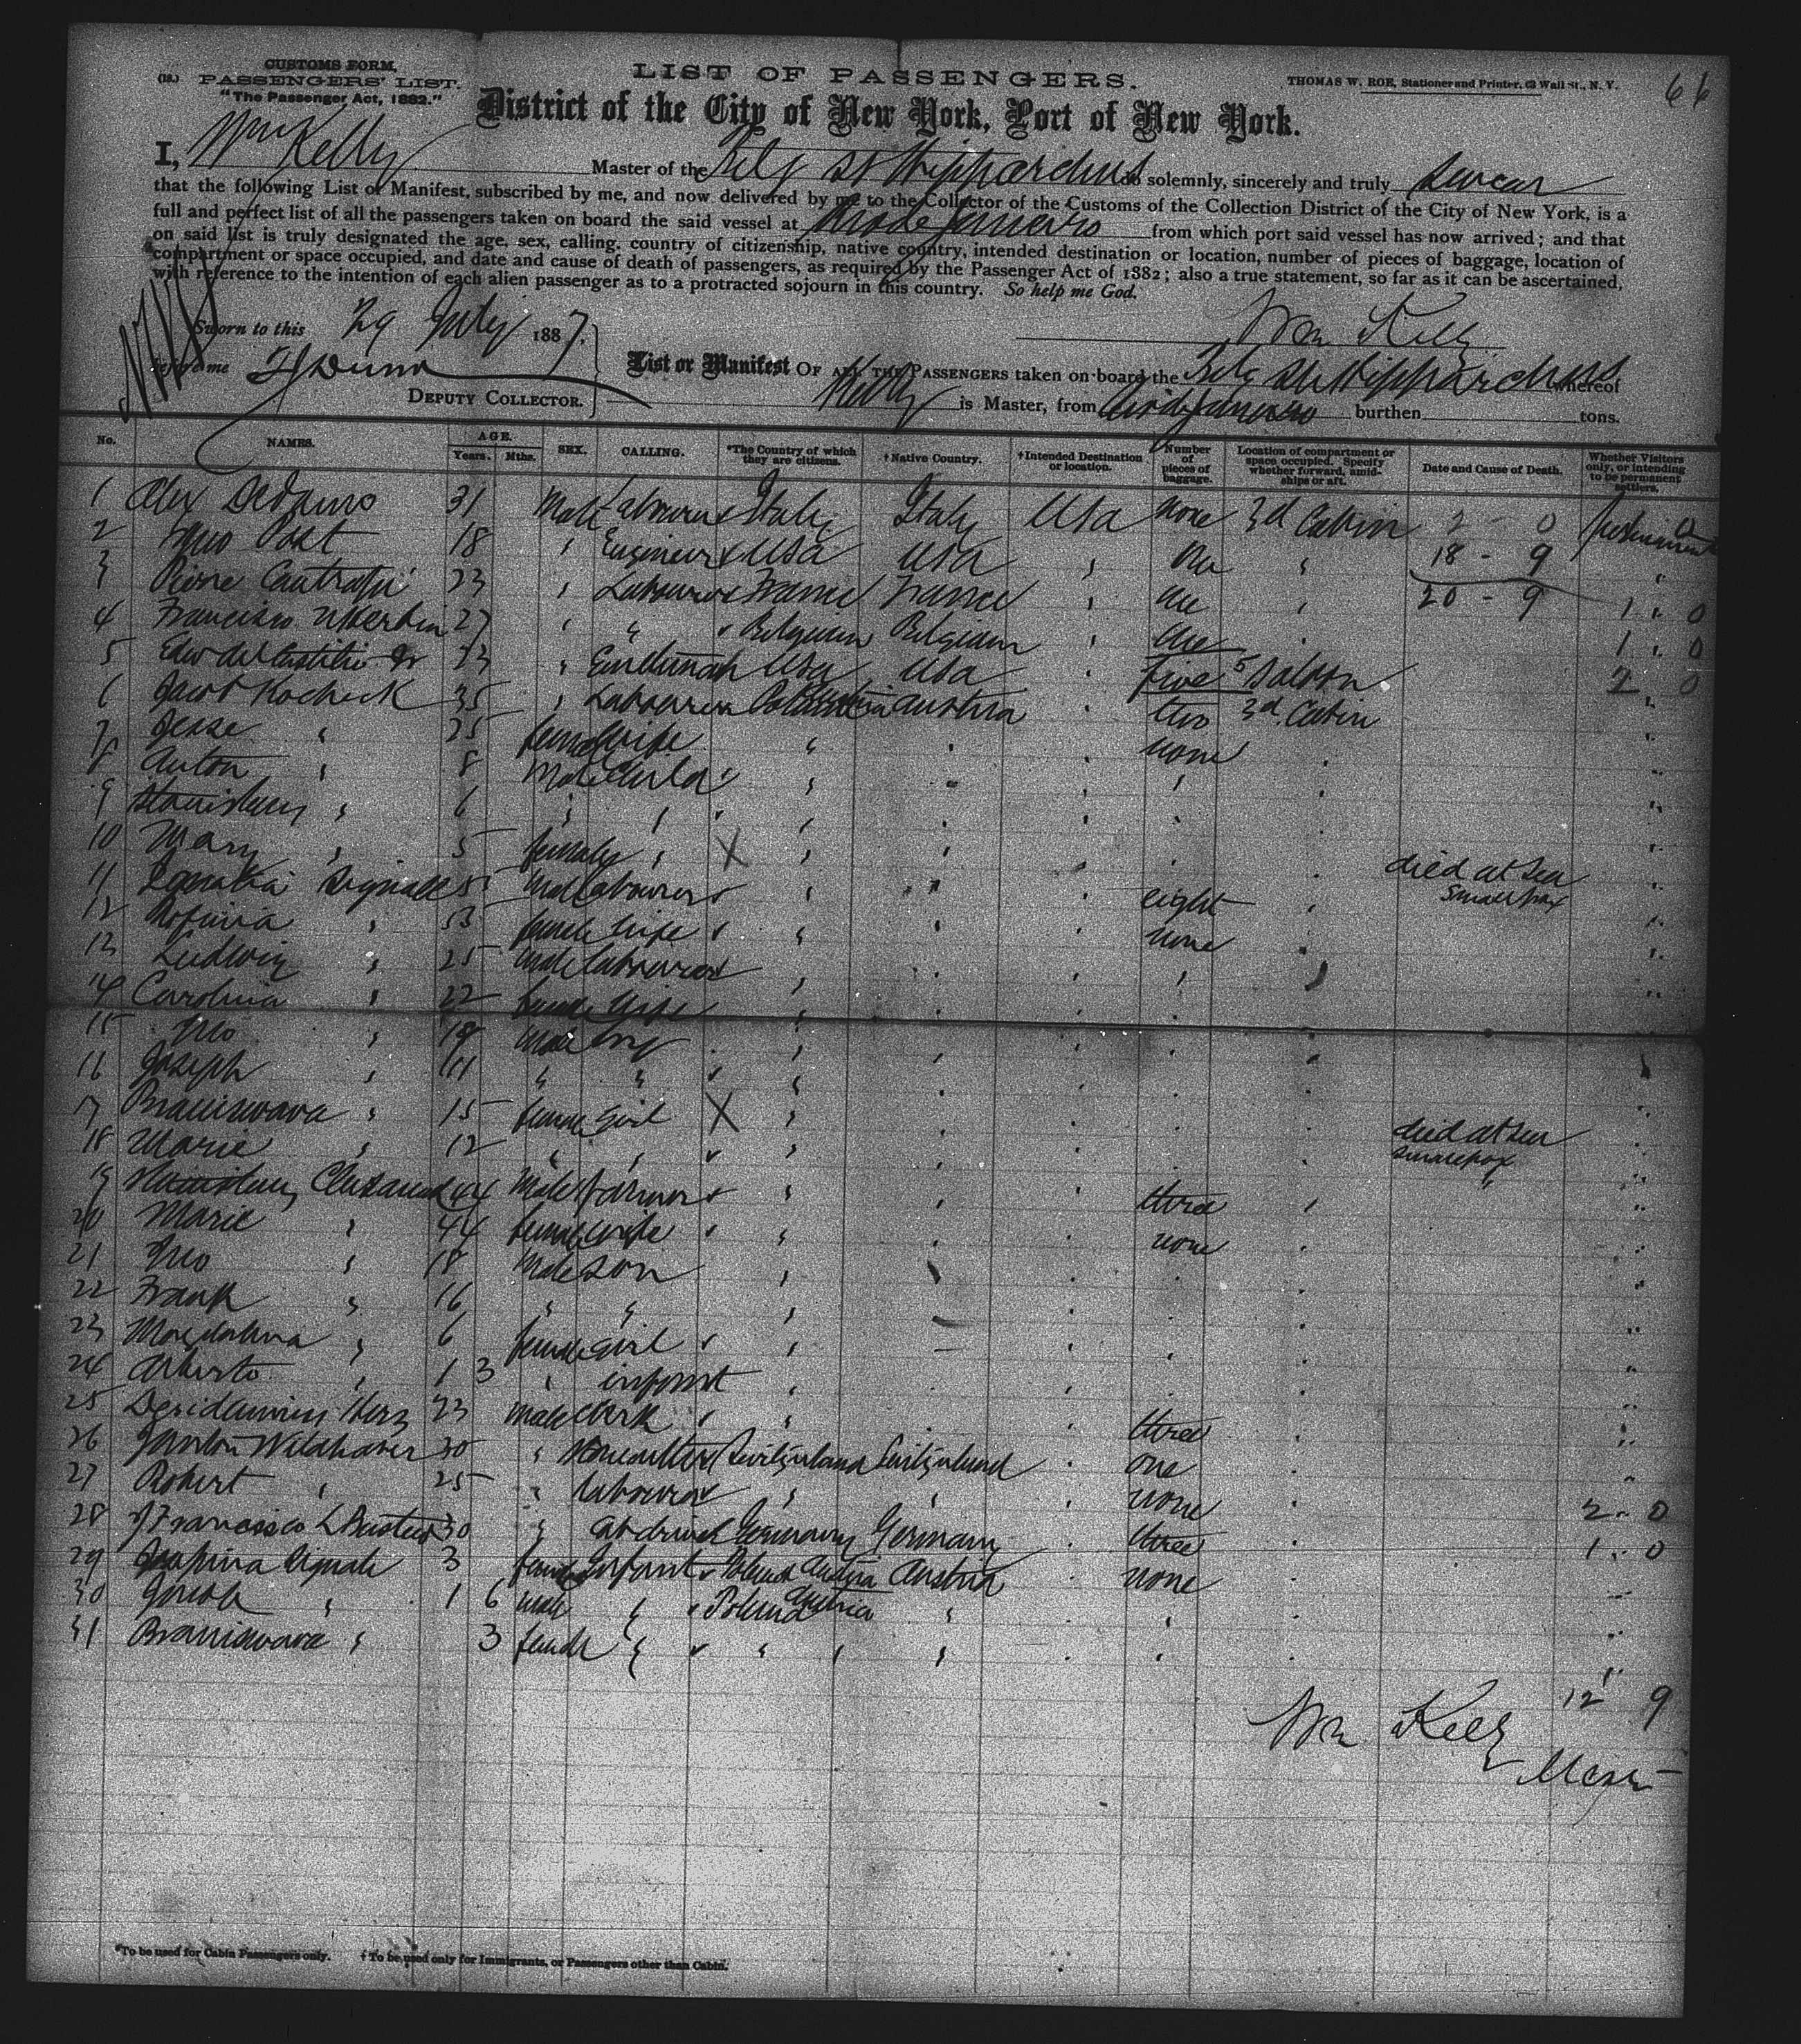 CUSTOMS FORM,
(18.) PASSENGERS' LIST.
"The Passenger Act, 1882."
LIST OF PASSENGERS.
THOMAS W. ROE, Stationer and Printer, 63 Wall St., N. Y.
66
District of the City of New York, Port of New York.
I, Wm Kelly Master of the Belg SS Hipparchus do solemnly, sincerely and truly swear
that the following List or Manifest, subscribed by me, and now delivered by me to the Collector of the Customs of the Collection District of the City of New York, is a
full and perfect list of all the passengers taken on board the said vessel at Rio de Janeiro from which port said vessel has now arrived; and that
on said list is truly designated the age, sex, calling, country of citizenship, native country, intended destination or location, number of pieces of baggage, location of
compartment or space occupied, and date and cause of death of passengers, as required by the Passenger Act of 1882; also a true statement, so far as it can be ascertained,
with reference to the intention of each alien passenger as to a protracted sojourn in this country. So help me God.
Sworn to this 29 July 1887.
Wm Kelly
before me Dunn
DEPUTY COLLECTOR.
List or Manifest OF ALL THE PASSENGERS taken on board the Belg SS Hipparchus whereof
Kelly is Master, from Rio de Janeiro burthen tons.
No. NAMES. AGE. Years. Mths. SEX. CALLING. *The Country of which they are citizens. †Native Country. †Intended Destination or location. Number of pieces of baggage. Location of compartment or space occupied. Specify whether forward, amidships or aft. Date and Cause of Death. Whether Visitors only, or intending to be permanent settlers.
1 Alex 31 Male Labourer Italy Italy USA None 3d Cabin 2 - 0
2 Post 18 " Engineer USA USA " One " 18 - 9 "
3 Pierre 23 " Labourer France France " One " 20 - 9 1 " 0
4 Francisco 27 " " Belgium Belgium " One " 1 " 0
5 Edw Jr 23 " USA USA " five 5 Saloon 2 " 0
6 Jacob Kocheck 35 " Labourer Austria " two 3d Cabin "
7 Jesse " 25 female Wife " " " none " "
8 Anton " 8 Male Child " " " " " "
9 Stanislaus " 6 " " " " " " " "
10 Mary " 5 female " X " " " " " died at Sea "
Smallpox
11 Signale 55 male Labourer " " " eight " "
12 " 53 female wife " " " none " "
13 Ludwig " 25 male labourer " " " " " "
14 Carolina " 22 female wife " " " " " "
15 Jno " 18 male boy " " " " " "
16 Joseph " 11 " " " " " " " "
17 Braniswava " 15 female girl X " " " " " died at Sea "
Smallpox
18 Marie " 12 " " " " " " " "
19 44 Male farmer " " " three " "
20 Marie " 44 female wife " " " none " "
21 Jno " 18 Male Son " " " " " "
22 Frank " 16 " " " " " " " "
23 Magdalina " 6 female girl " " " " " "
24 Alberto " 1 3 " infant " " " " " "
25 Herz 23 male clerk " " " three " "
26 Wildhaber 30 " Switzerland Switzerland " one " "
27 Robert " 25 " labourer " " " none " 2 - 0
28 Francisco 30 " Germany Germany " three " 1 " 0
29 Signale 3 female Infant Poland Austria Austria " none " "
30 Jacob " 1 6 male " Poland Austria " " " " "
31 Braniswava " 3 female " " " " " " " "
12 9
Wm Kelly
Master
*To be used for Cabin Passengers only. †To be used only for Immigrants, or Passengers other than Cabin.